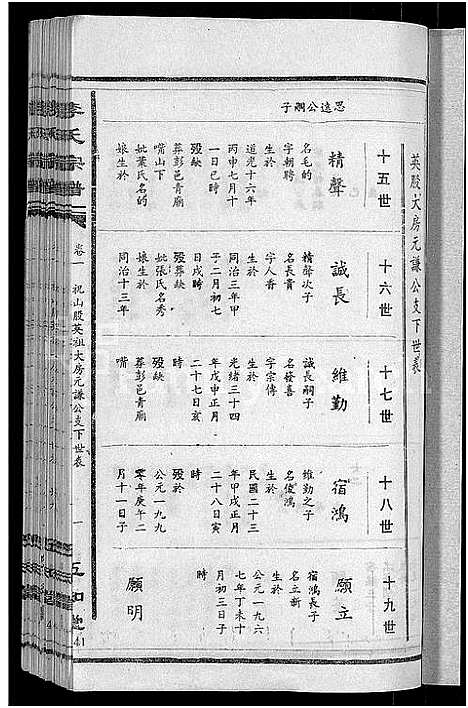 英股大房元謙公支下世表
十五世
思遠公嗣子
精聲
名毛的
字朝聘
生於
道光十六年
丙申七月十
一日巳時
歿缺
葬彭邑青廟
嘴山下
妣葉氏名的
娘生於
十六世
誠長
精聲次子
名長貴
字人香
生於
同治三年甲
子二月初七
日戌時
歿葬缺
妣張氏名秀
娘生於
同治十三年
十七世
維勤
誠長嗣子
名發喜
字宗傳
生於
光緒三十四
年戊申正月
二十七日亥
時
歿缺
葬彭邑青廟
嘴
十八世
宿鴻
維勤之子
名俊鴻
生於
民國二十三
年甲戌正月
二十八日寅
時
歿於
公元一九九
零年庚午二
月十一日子
十九世
願立
宿鴻長子
名立新
生於
公元一九六
七年丁未十
月初三日子
時
願明
李氏宗譜
卷一
祝山股英祖大房元謙公支下世表
一
41